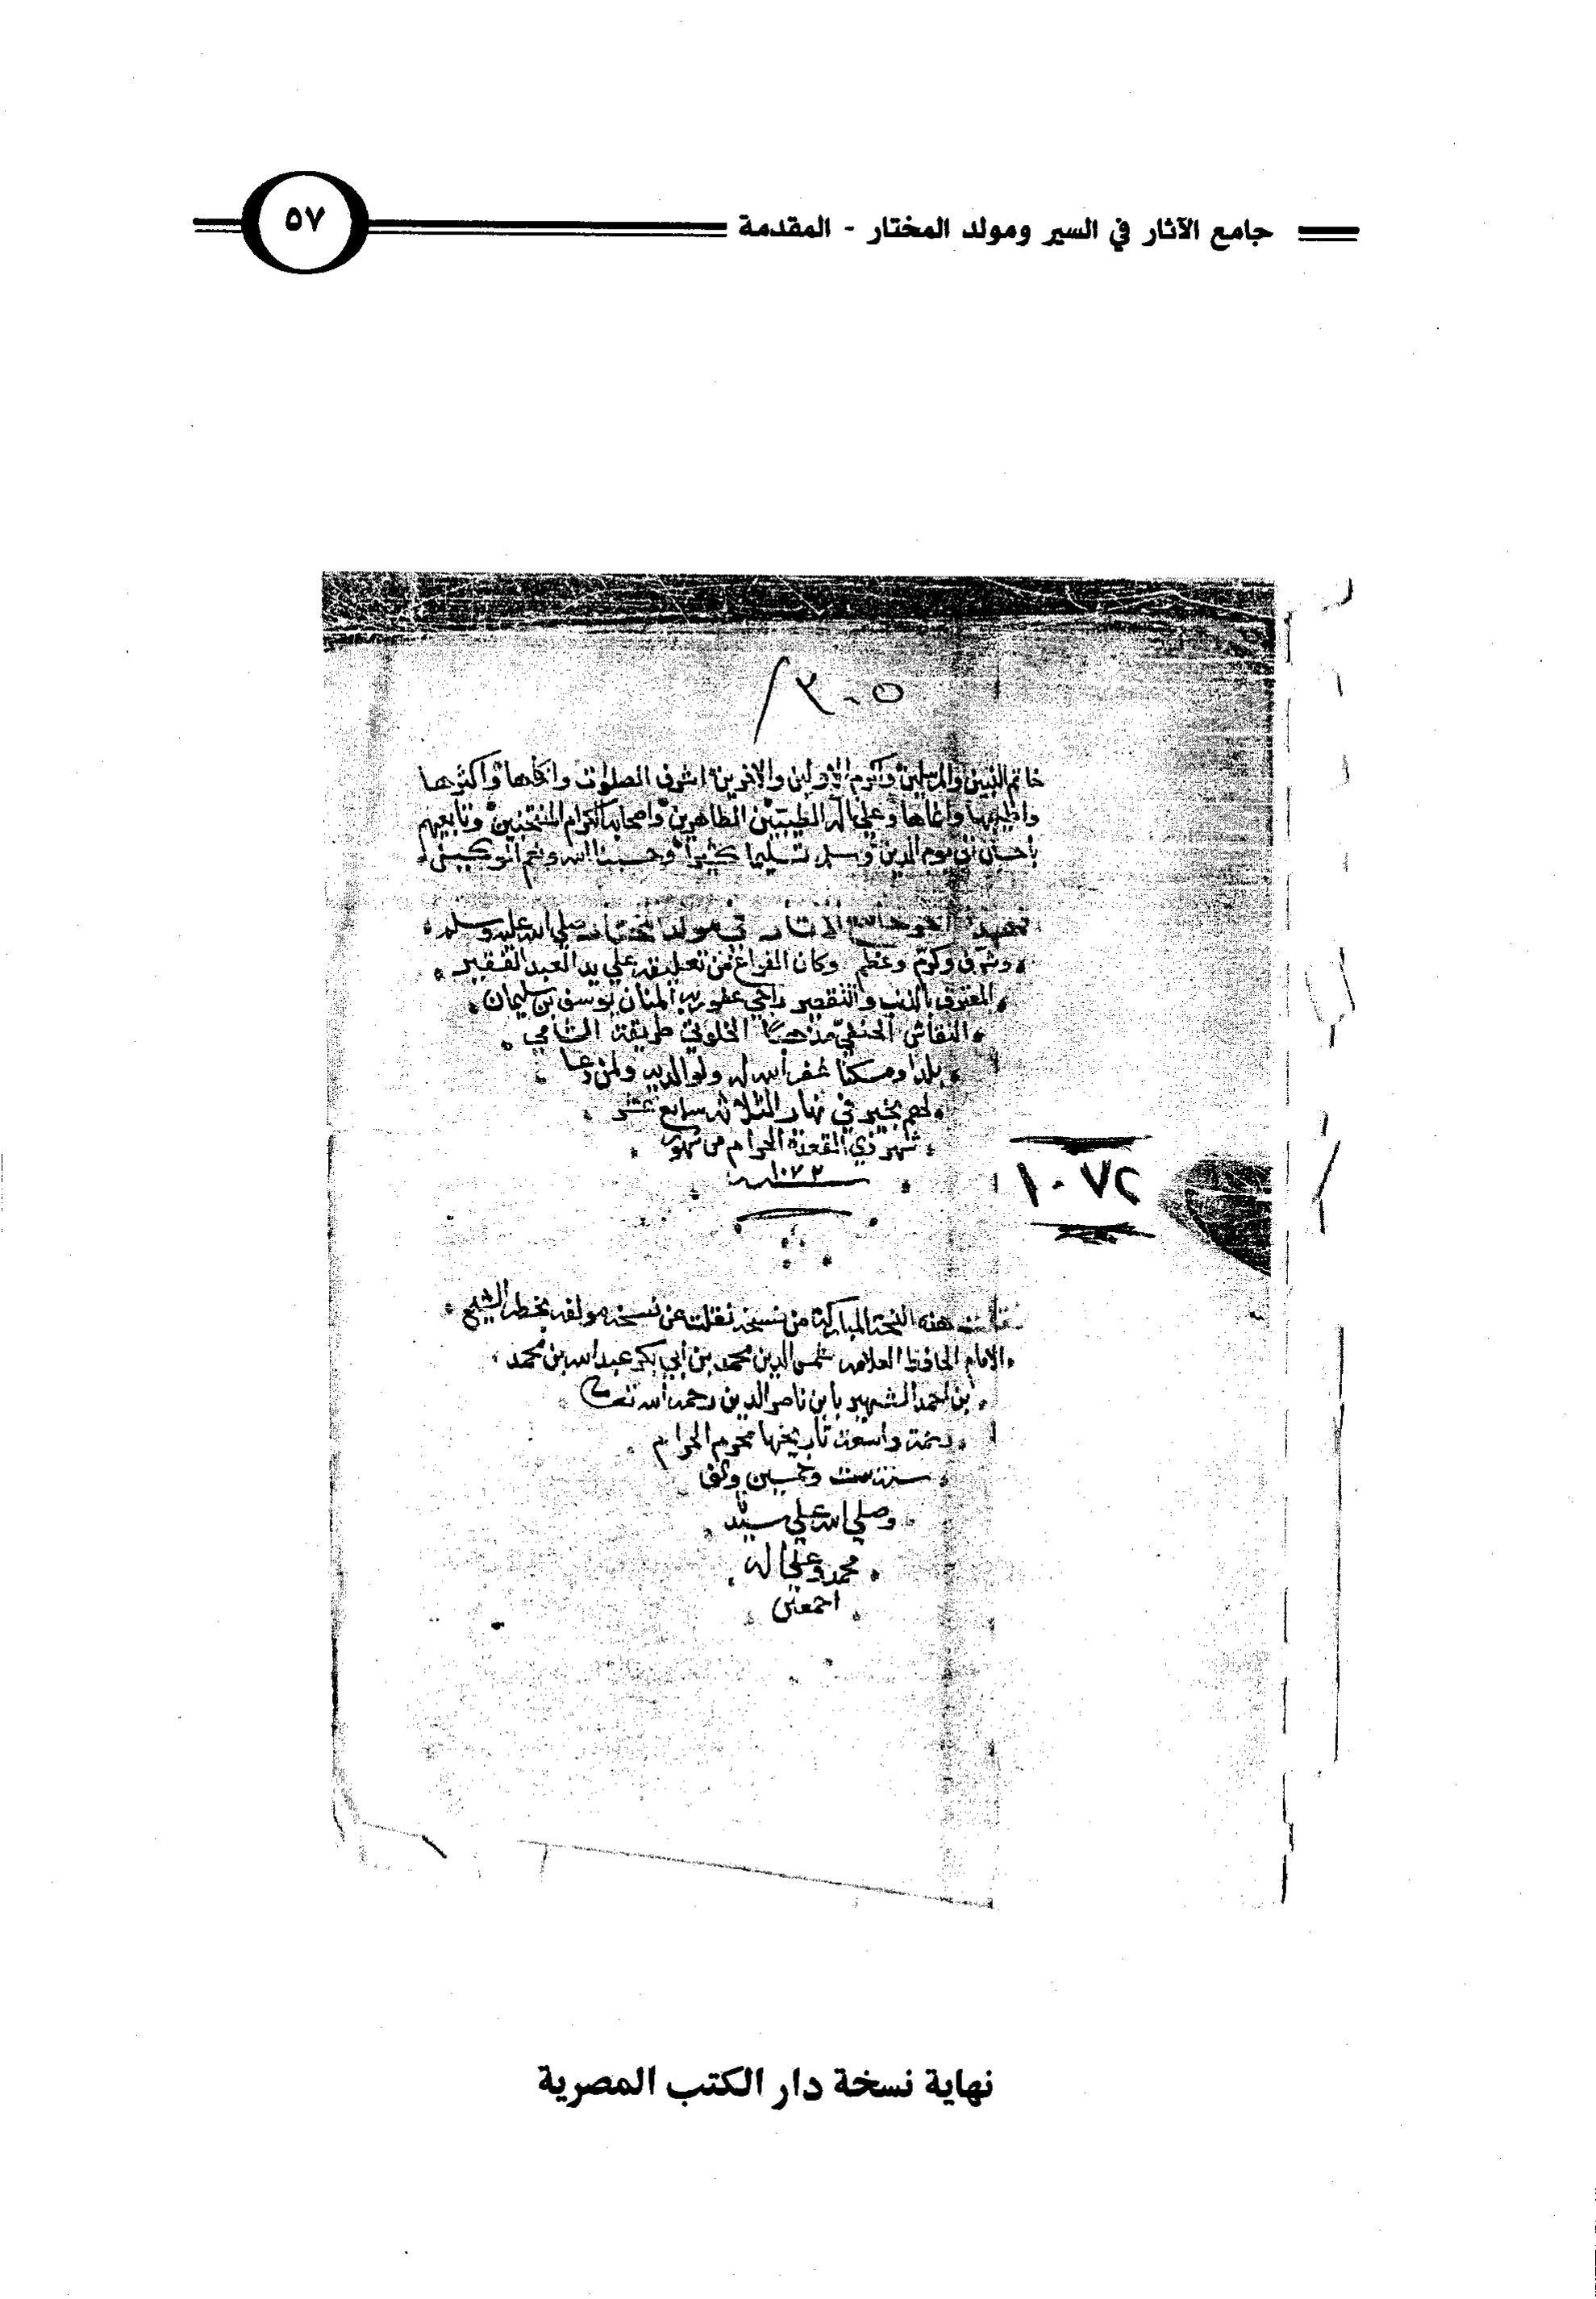 جامع الآثار في السير ومولد المختار - المقدمة
٥٧
٣٠٥
خاتم النبيين والمرسلين واكرم الاولين والاخرين اشرف الصلوات واكملها واكثرها
واطيبها وانماها وعلى اله الطيبين الطاهرين واصحابه الكرام المنتخبين وتابعيهم
باحسان الى يوم الدين وسلم تسليما كثيرا وحسبنا الله ونعم الوكيل
اخر جامع الاثار في مولد المختار صلى الله عليه وسلم
وشرف وكرم وعظم وكان الفراغ من تعليقه على يد العبد الفقير
المعترف بالذنب والتقصير راجي عفو ربه المنان يوسف بن سليمان
النقاش الحنفي مذهبا الخلوتي طريقة الشامي
بلدا ومسكنا غفر الله له ولوالديه ولمن دعا
لهم بخير في نهار الثلاثا سابع عشر
شهر ذي القعدة الحرام من شهور
سنة ١٠٧٢
١٠٧٢
نقلت هذه النسخة المباركة من نسخة نقلت عن نسخة مولفه بخط الشيخ
الامام الحافظ العلامه شمس الدين محمد بن أبي بكر عبد الله بن محمد
بن احمد الشهير بابن ناصر الدين رحمه الله تعالى
رحمة واسعة تاريخها محرم الحرام
سنة ست وخمسين والف
وصلى الله على سيدنا
محمد وعلى اله
اجمعين
نهاية نسخة دار الكتب المصرية